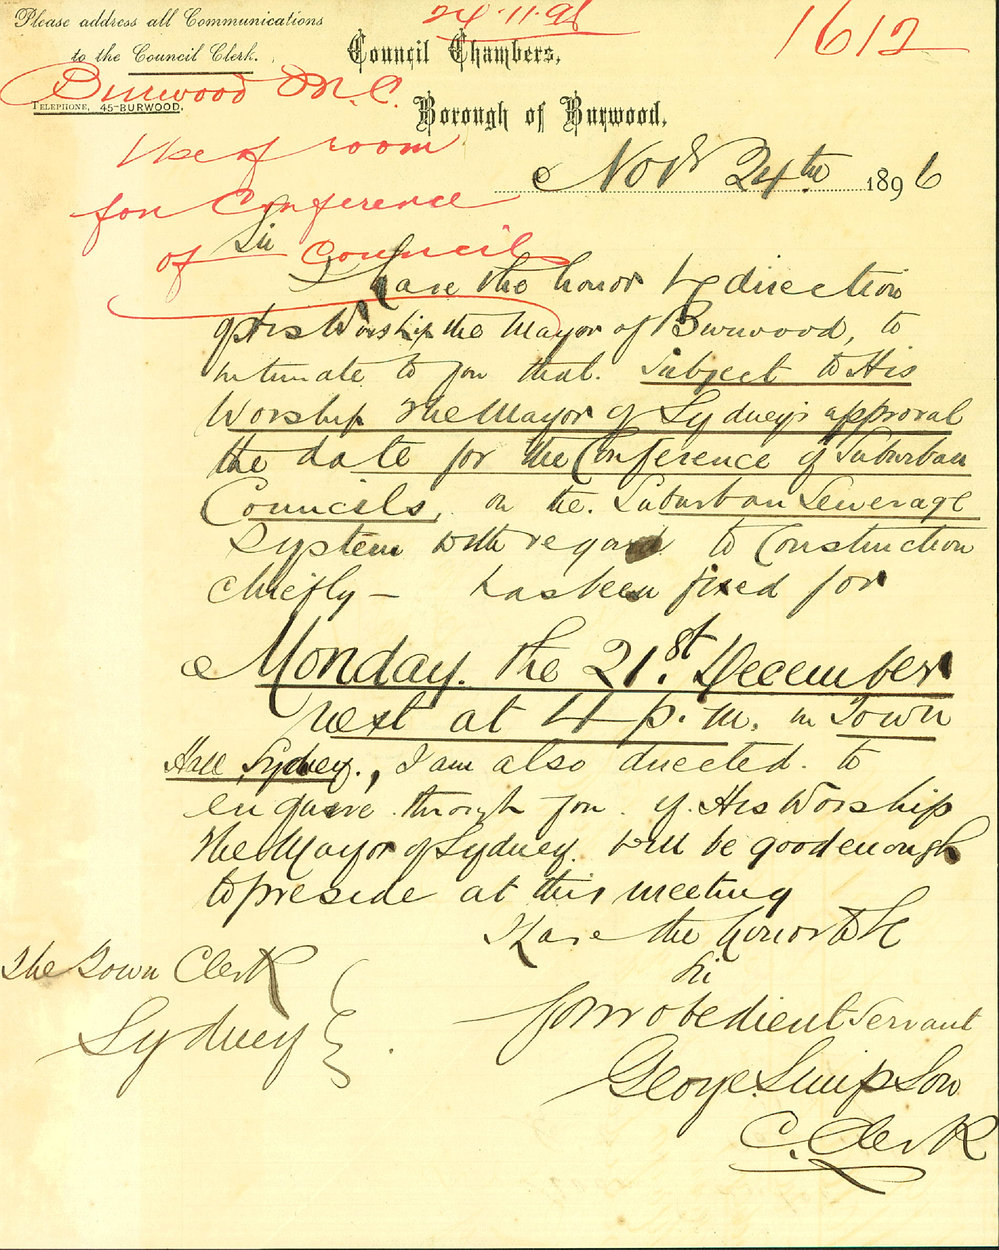 Please address all Communications
to the Council Clerk.
TELEPHONE, 45-BURWOOD.
24.11.96
1612
Council Chambers,
Borough of Burwood,
Burwood M.C.
Use of room
for Conference
of Councils
Novr 24th 1896
Sir
I have the honor by direction
of His Worship the Mayor of Burwood, to
intimate to you that. Subject to His
Worship the Mayor of Sydney's approval
the date for the Conference of Suburban
Councils, on the. Suburban Sewerage
System with regard to Construction
chiefly – has been fixed for
Monday. the 21st. December
next at 4 p.m. in Town
Hall, Sydney., I am also directed. to
enquire through you. if His Worship
the Mayor of Sydney. will be good enough
to preside at this meeting
I have the honor to be
Sir
Your obedient Servant
George Simpson
C. Clerk
The Town Clerk
Sydney.